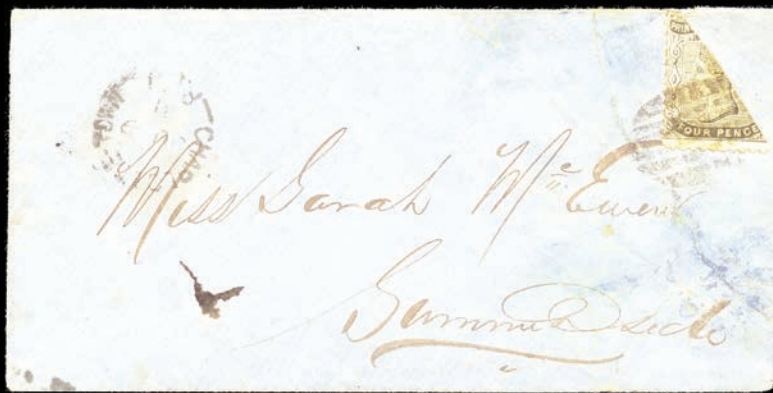 FOUR PENCE
CHAR
TOWN
Miss Sarah McEwen
Summerside